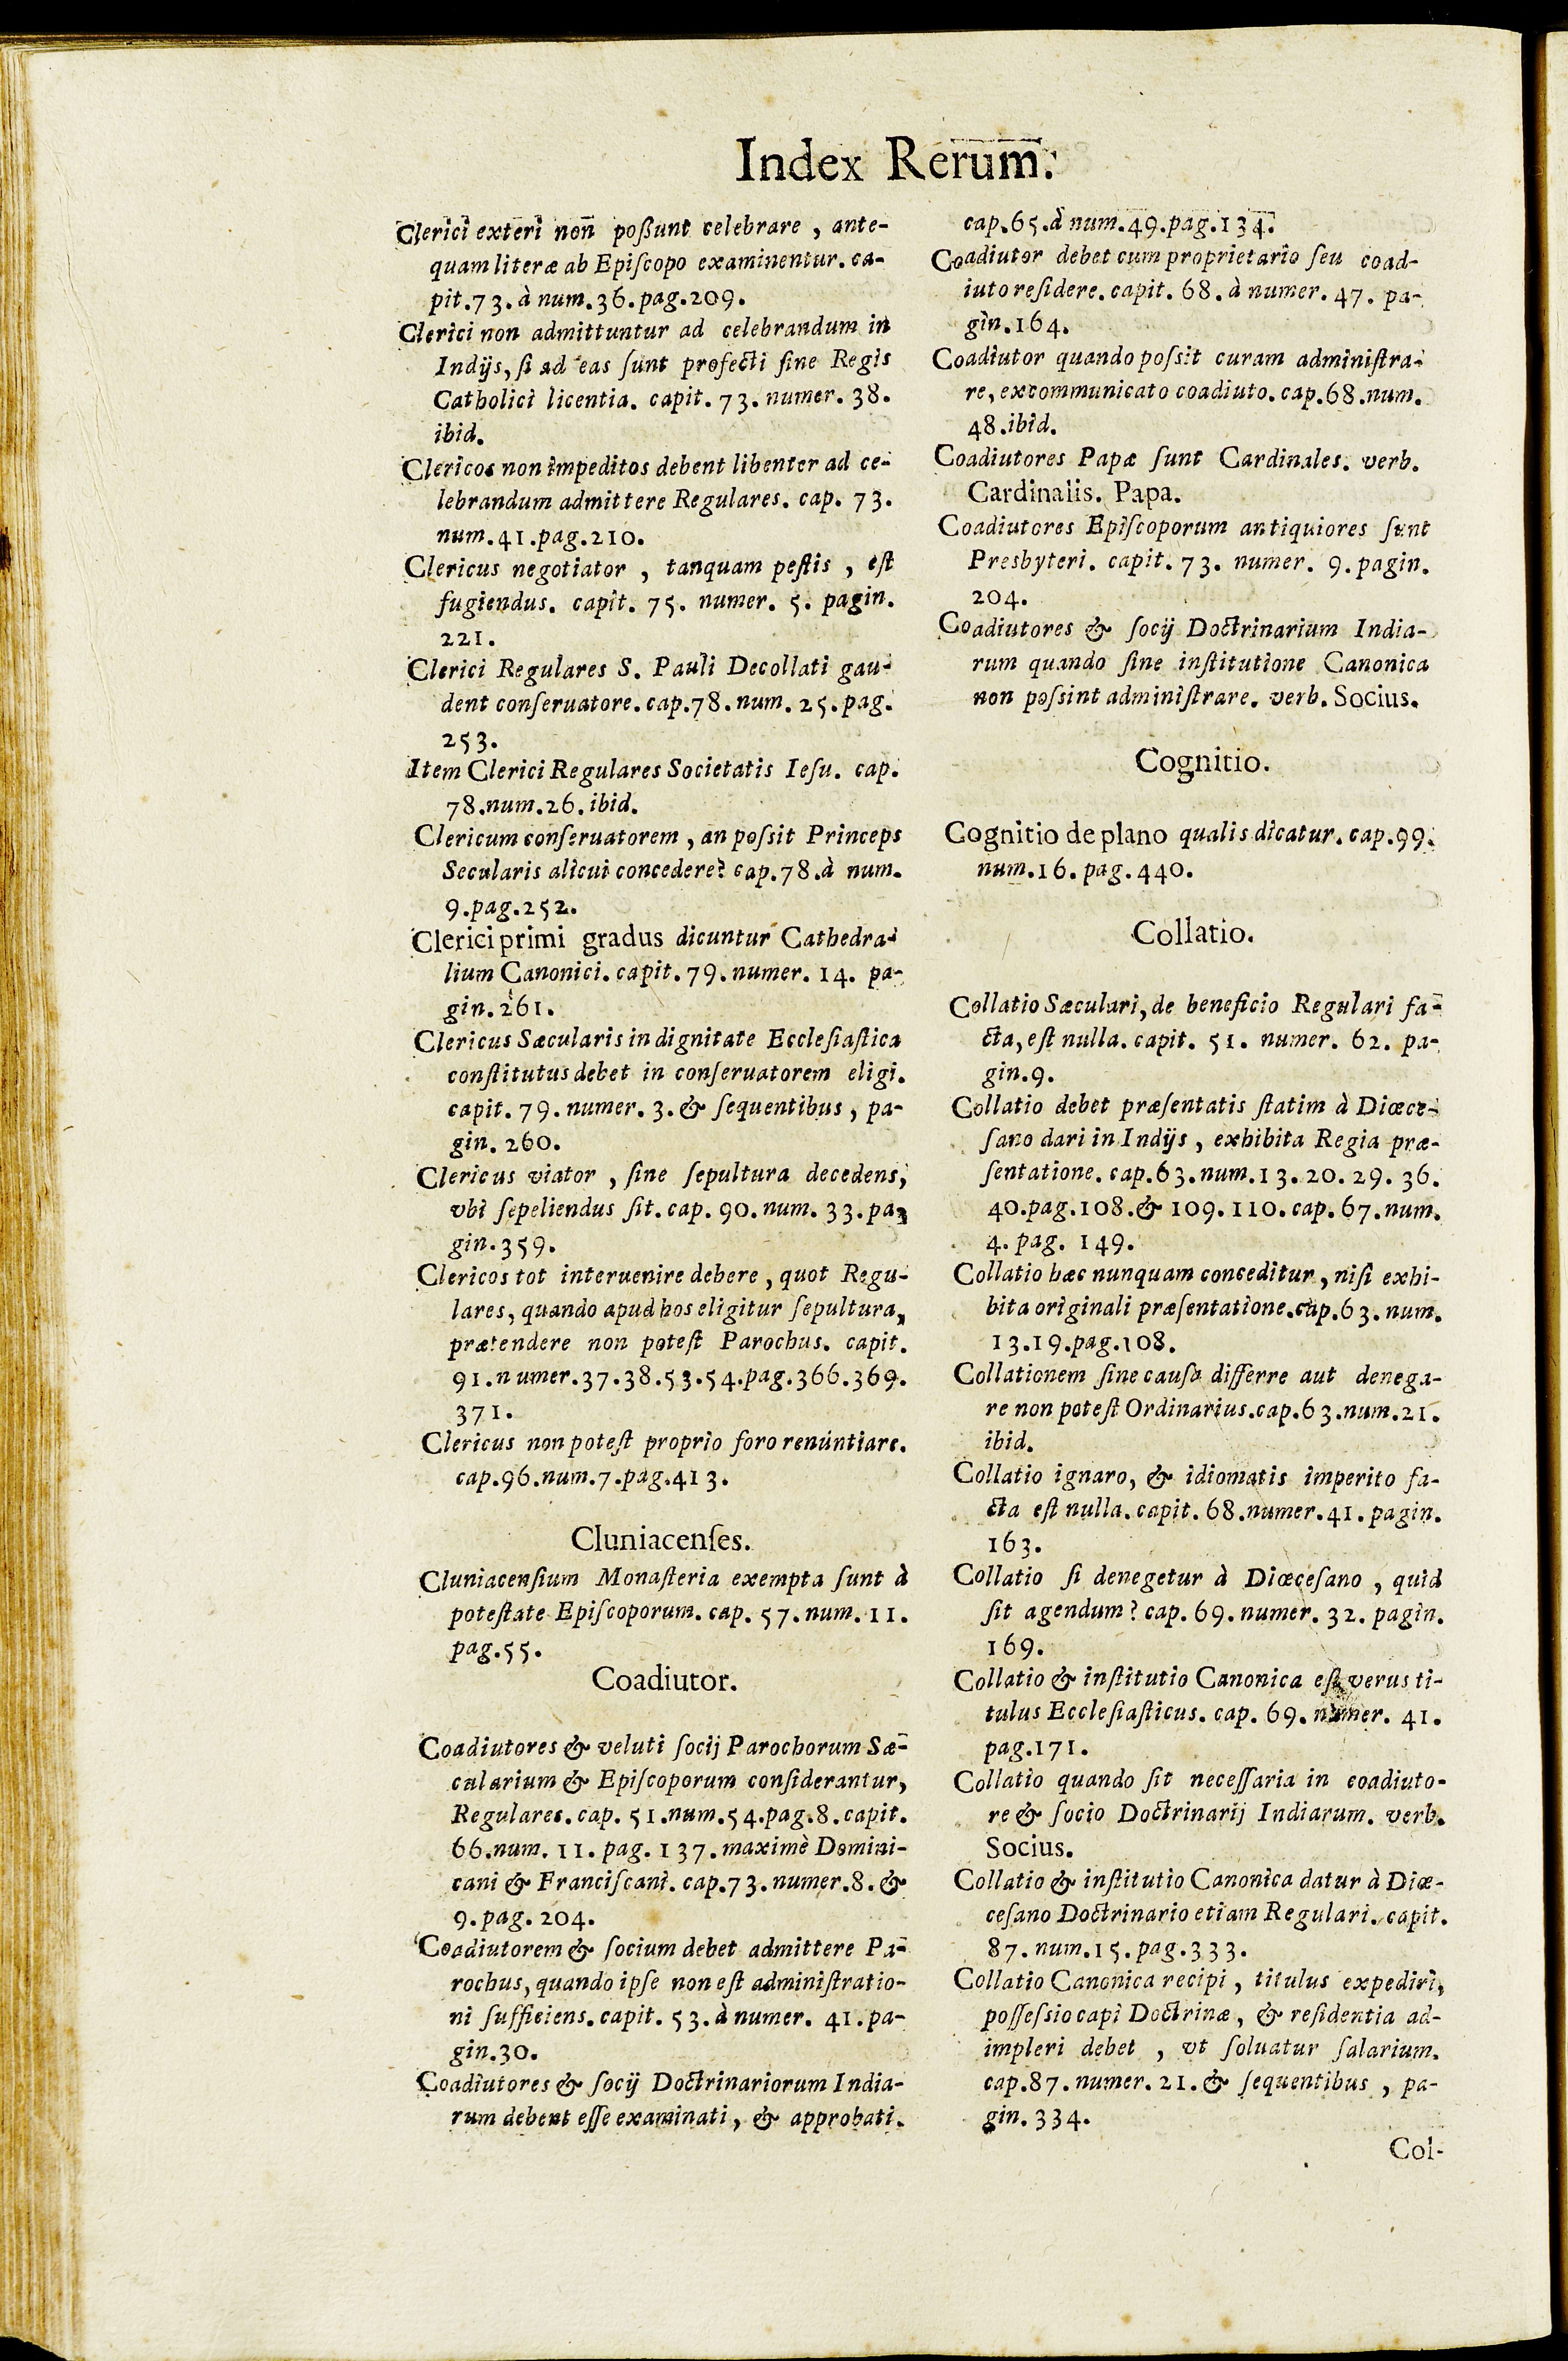 Index Rerum.
Clerici exteri non poßunt celebrare , ante-
quam literæ ab Epiſcopo examinentur. ca-
pit.73. à num.36.pag.209.
Clerici non admittuntur ad celebrandum in
Indijs, ſi ad eas ſunt profecti ſine Regis
Catholici licentia. capit. 73. numer. 38.
ibid.
Clericos non impeditos debent libenter ad ce-
lebrandum admittere Regulares. cap. 73.
num.41.pag.210.
Clericus negotiator , tanquam peſtis , eſt
fugiendus. capit. 75. numer. 5. pagin.
221.
Clerici Regulares S. Pauli Decollati gau-
dent conſeruatore. cap.78. num. 25. pag.
253.
Item Clerici Regulares Societatis Ieſu. cap.
78.num.26. ibid.
Clericum conſeruatorem , an poſsit Princeps
Secularis alicui concedere? cap.78.à num.
9.pag.252.
Clerici primi gradus dicuntur Cathedra-
lium Canonici. capit. 79. numer. 14. pa-
gin. 261.
Clericus Sæcularis in dignitate Eccleſiaſtica
conſtitutus debet in conſeruatorem eligi.
capit. 79. numer. 3. & ſequentibus, pa-
gin. 260.
Clericus viator , ſine ſepultura decedens,
vbi ſepeliendus ſit. cap. 90. num. 33. pa-
gin.359.
Clericos tot interuenire debere , quot Regu-
lares, quando apud hos eligitur ſepultura,
prætendere non poteſt Parochus. capit.
91.numer.37.38.53.54.pag.366.369.
371.
Clericus non poteſt proprio foro renúntiare.
cap.96.num.7.pag.413.
Cluniacenſes.
Cluniacenſium Monaſteria exempta ſunt à
poteſtate Epiſcoporum. cap. 57. num. 11.
pag.55.
Coadiutor.
Coadiutores & veluti ſocij Parochorum Sæ-
cularium & Epiſcoporum conſiderantur,
Regulares. cap. 51.num.54.pag.8. capit.
66.num. 11. pag. 137. maximè Domini-
cani & Franciſcani. cap.73. numer.8. &
9. pag. 204.
Coadiutorem & ſocium debet admittere Pa-
rochus, quando ipſe non eſt adminiſtratio-
ni ſufficiens. capit. 53. à numer. 41. pa-
gin.30.
Coadiutores & ſocij Doctrinariorum India-
rum debent eſſe examinati, & approbati.
cap.65.à num.49.pag.134.
Coadiutor debet cum proprietario ſeu coad-
iuto reſidere. capit. 68. à numer. 47. pa-
gin.164.
Coadiutor quando poſsit curam adminiſtra-
re, excommunicato coadiuto. cap.68.num.
48.ibid.
Coadiutores Papæ ſunt Cardinales. verb.
Cardinalis. Papa.
Coadiutores Epiſcoporum antiquiores ſunt
Presbyteri. capit. 73. numer. 9. pagin.
204.
Coadiutores & ſocij Doctrinarium India-
rum quando ſine inſtitutione Canonica
non poſsint adminiſtrare. verb. Socius.
Cognitio.
Cognitio de plano qualis dicatur. cap.99.
num.16. pag.440.
Collatio.
Collatio Sæculari, de beneficio Regulari fa-
cta, eſt nulla. capit. 51. numer. 62. pa-
gin.9.
Collatio debet præſentatis ſtatim à Diœce-
ſano dari in Indijs , exhibita Regia præ-
ſentatione. cap.63.num.13. 20. 29. 36.
40.pag.108.& 109. 110. cap. 67. num.
4. pag. 149.
Collatio hæc nunquam conceditur, niſi exhi-
bita originali præſentatione.cap.63. num.
13.19.pag.108.
Collationem ſine cauſa differre aut denega-
re non poteſt Ordinarius.cap.63.num.21.
ibid.
Collatio ignaro, & idiomatis imperito fa-
cta eſt nulla. capit. 68.numer.41. pagin.
163.
Collatio ſi denegetur à Diœceſano , quid
ſit agendum? cap. 69. numer. 32. pagin.
169.
Collatio & inſtitutio Canonica eſt verus ti-
tulus Eccleſiaſticus. cap. 69. numer. 41.
pag.171.
Collatio quando ſit neceſſaria in coadiuto-
re & ſocio Doctrinarij Indiarum. verb.
Socius.
Collatio & inſtitutio Canonica datur à Diœ-
ceſano Doctrinario etiam Regulari. capit.
87. num.15. pag.333.
Collatio Canonica recipi , titulus expediri,
poſſeſsio capi Doctrinæ, & reſidentia ad-
impleri debet , vt ſoluatur ſalarium.
cap.87. numer. 21. & ſequentibus , pa-
gin. 334.
Col-